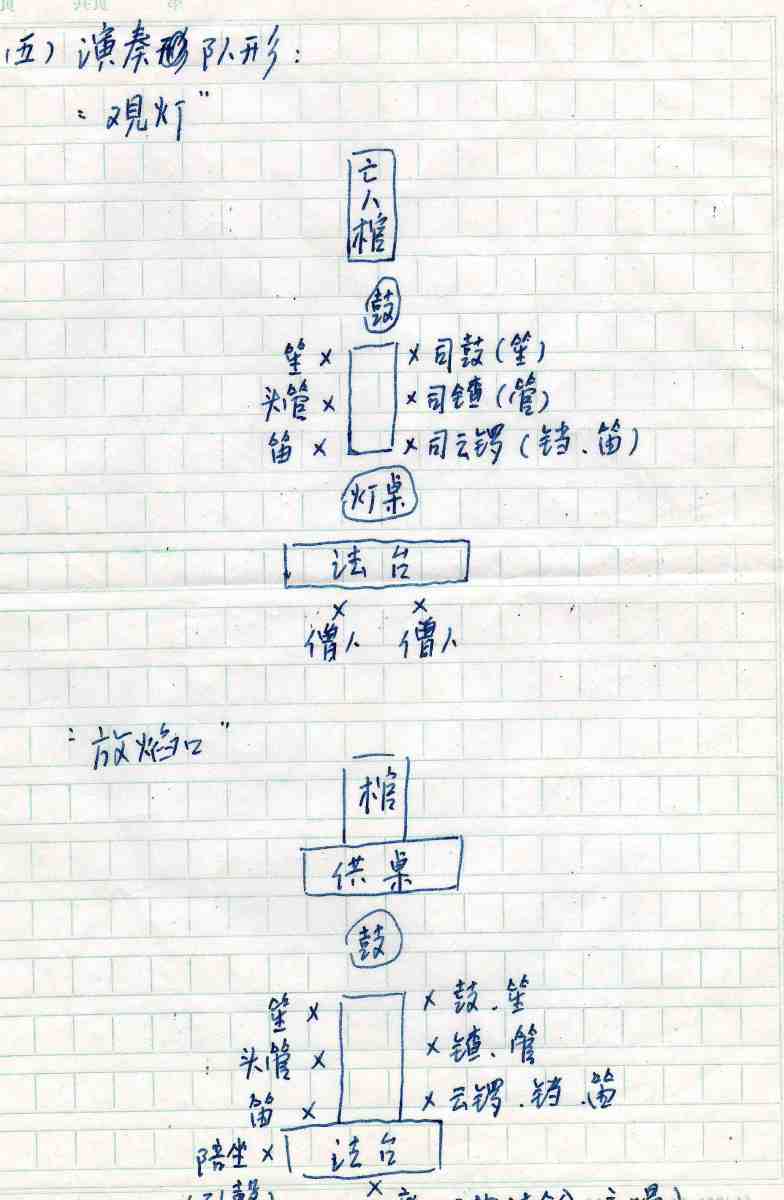 (五) 演奏队形:
“观灯”
亡人棺
鼓
笙 × × 司鼓(笙)
头管 × × 司镲(管)
笛 × × 司云锣(铛、笛)
灯桌
法台
× ×
僧人 僧人
“放焰口”
棺
供桌
鼓
笙 × × 鼓、笙
头管 × × 镲、管
笛 × × 云锣、铛、笛
陪坐 × 法台
×